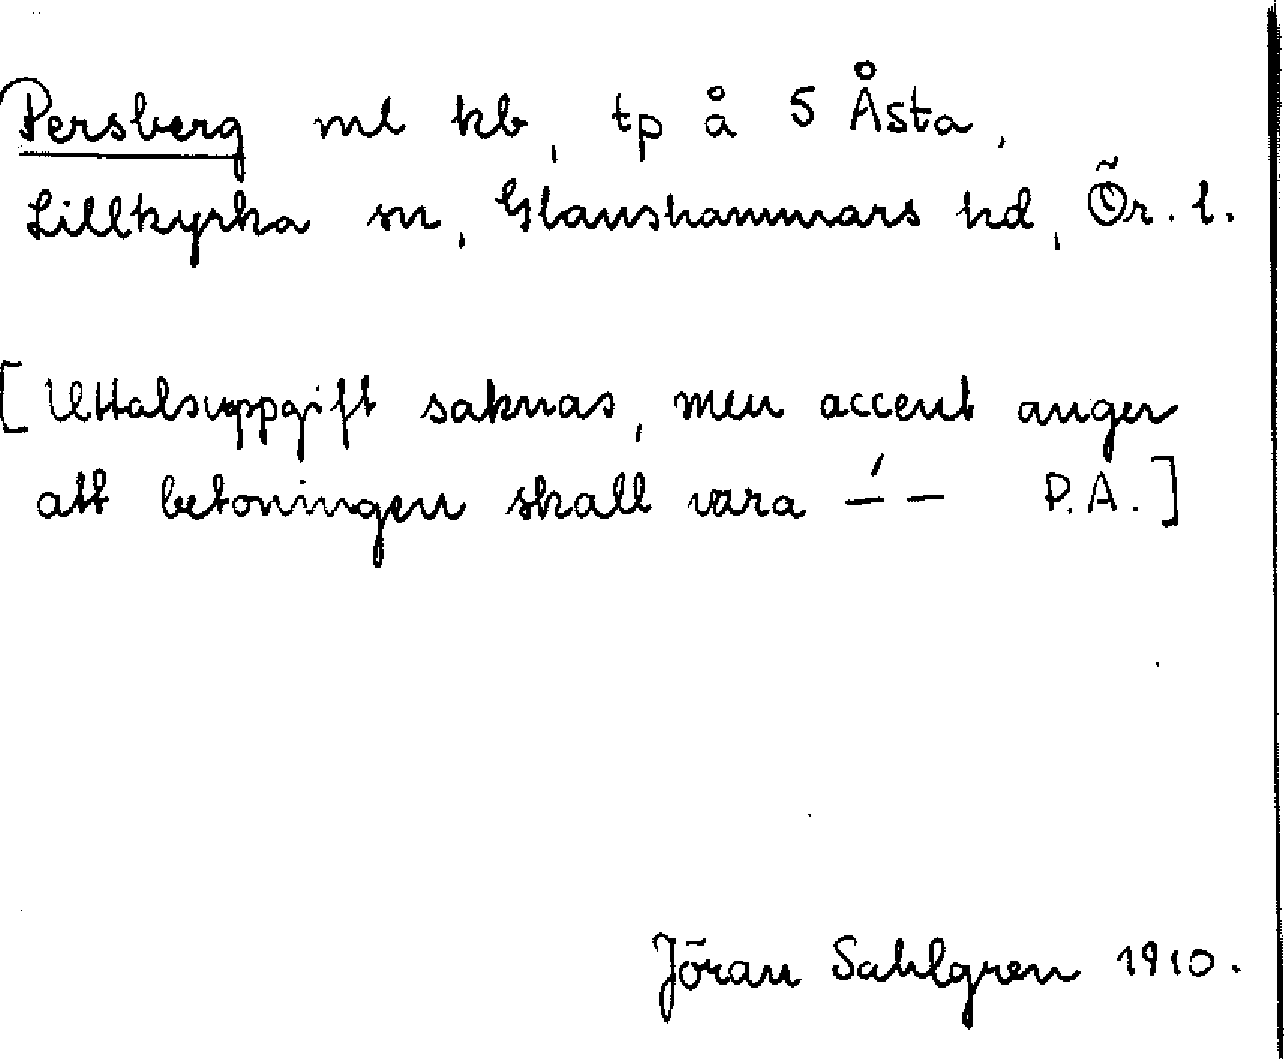 Persberg ml kb, tp å S Åsta,
Lillkyrka sn, Glanshammars hd, Ör. l.
[Uttalsuppgift saknas, men accent anger
att betoningen skall vara –́ – P.A.]
Jöran Sahlgren 1910.